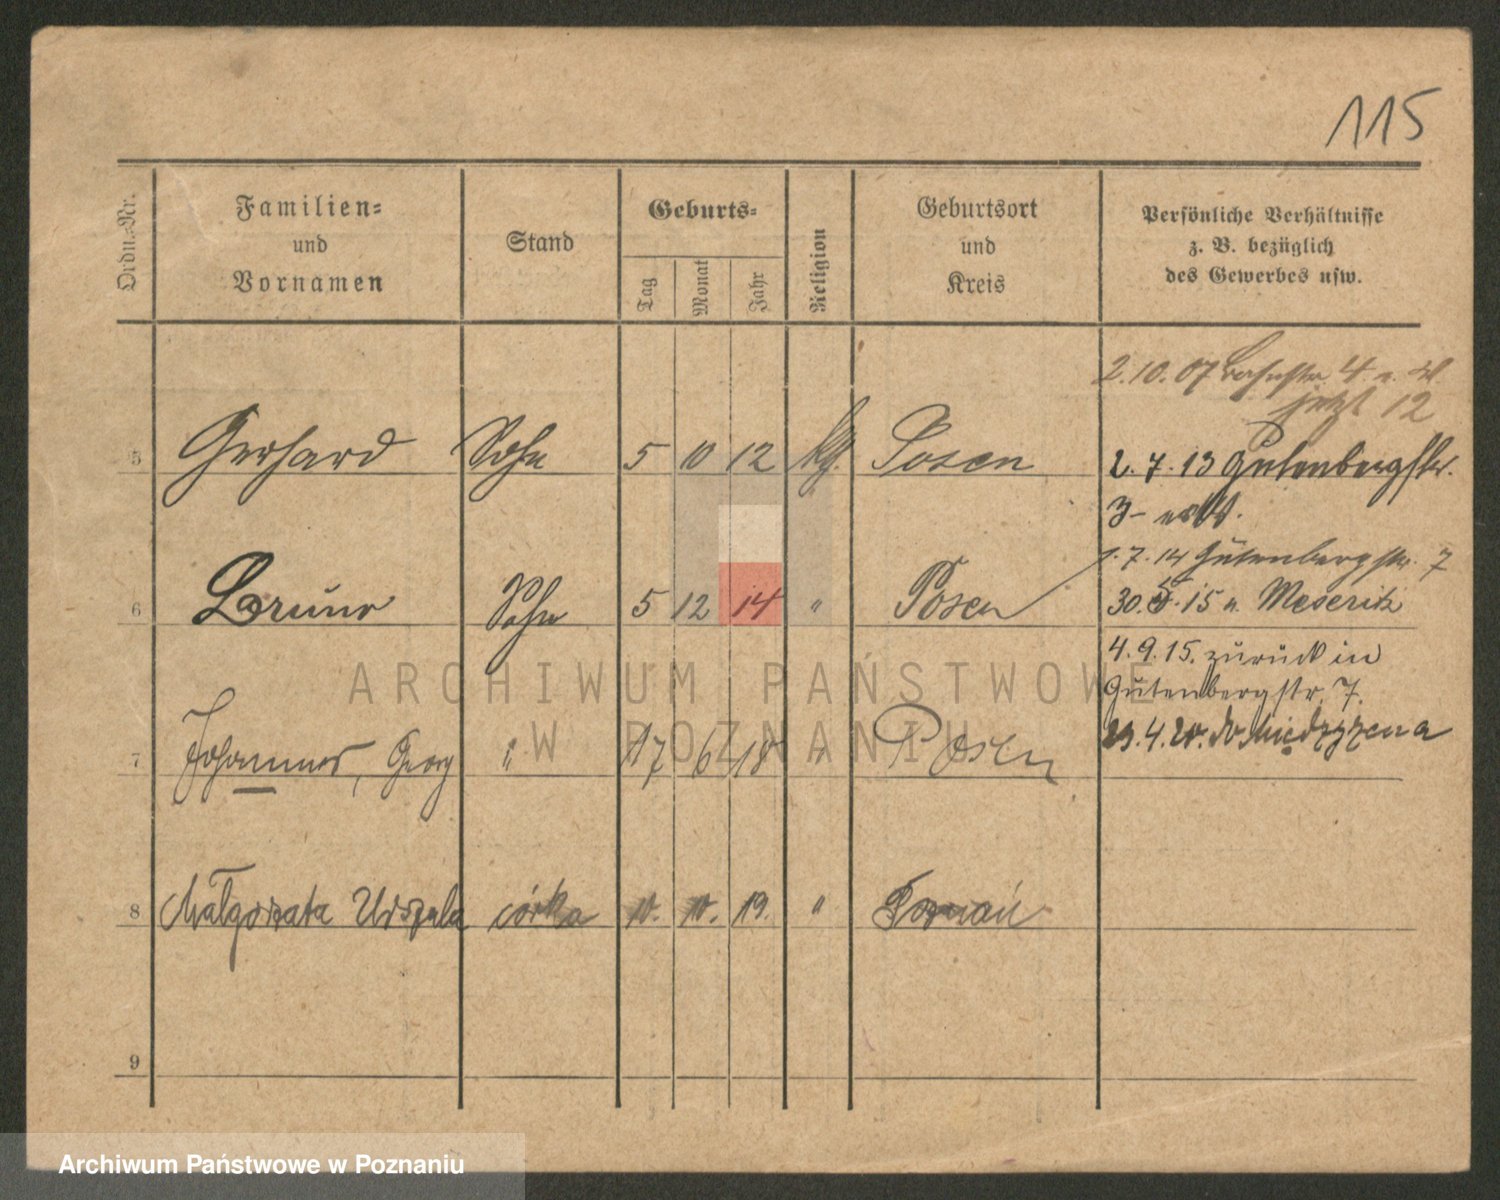 115
Ordn.-Nr.
Familien-
und
Vornamen
Stand
Geburts-
Tag
Monat
Jahr
Religion
Geburtsort
und
Kreis
Persönliche Verhältnisse
z. B. bezüglich
des Gewerbes usw.
2.10.07 4
jetzt 12
5 Gerhard Sohn 5 10 12 kg. Posen 2.7.13 Gutenbergstr.
3-
1.7.14 Gutenbergstr. 7
6 Bruno Sohn 5 12 14 " Posen 30.5.15 n. Meseritz
4.9.15. zurück in
Gutenbergstr. 7.
29.4.20. do Międzyzena
7 Johannes, Georg " 17 6 18 " Posen
8 Małgorzata Urszula córka 10. 10. 19. " Poznań
9
ARCHIWUM PAŃSTWOWE
W POZNANIU
Archiwum Państwowe w Poznaniu